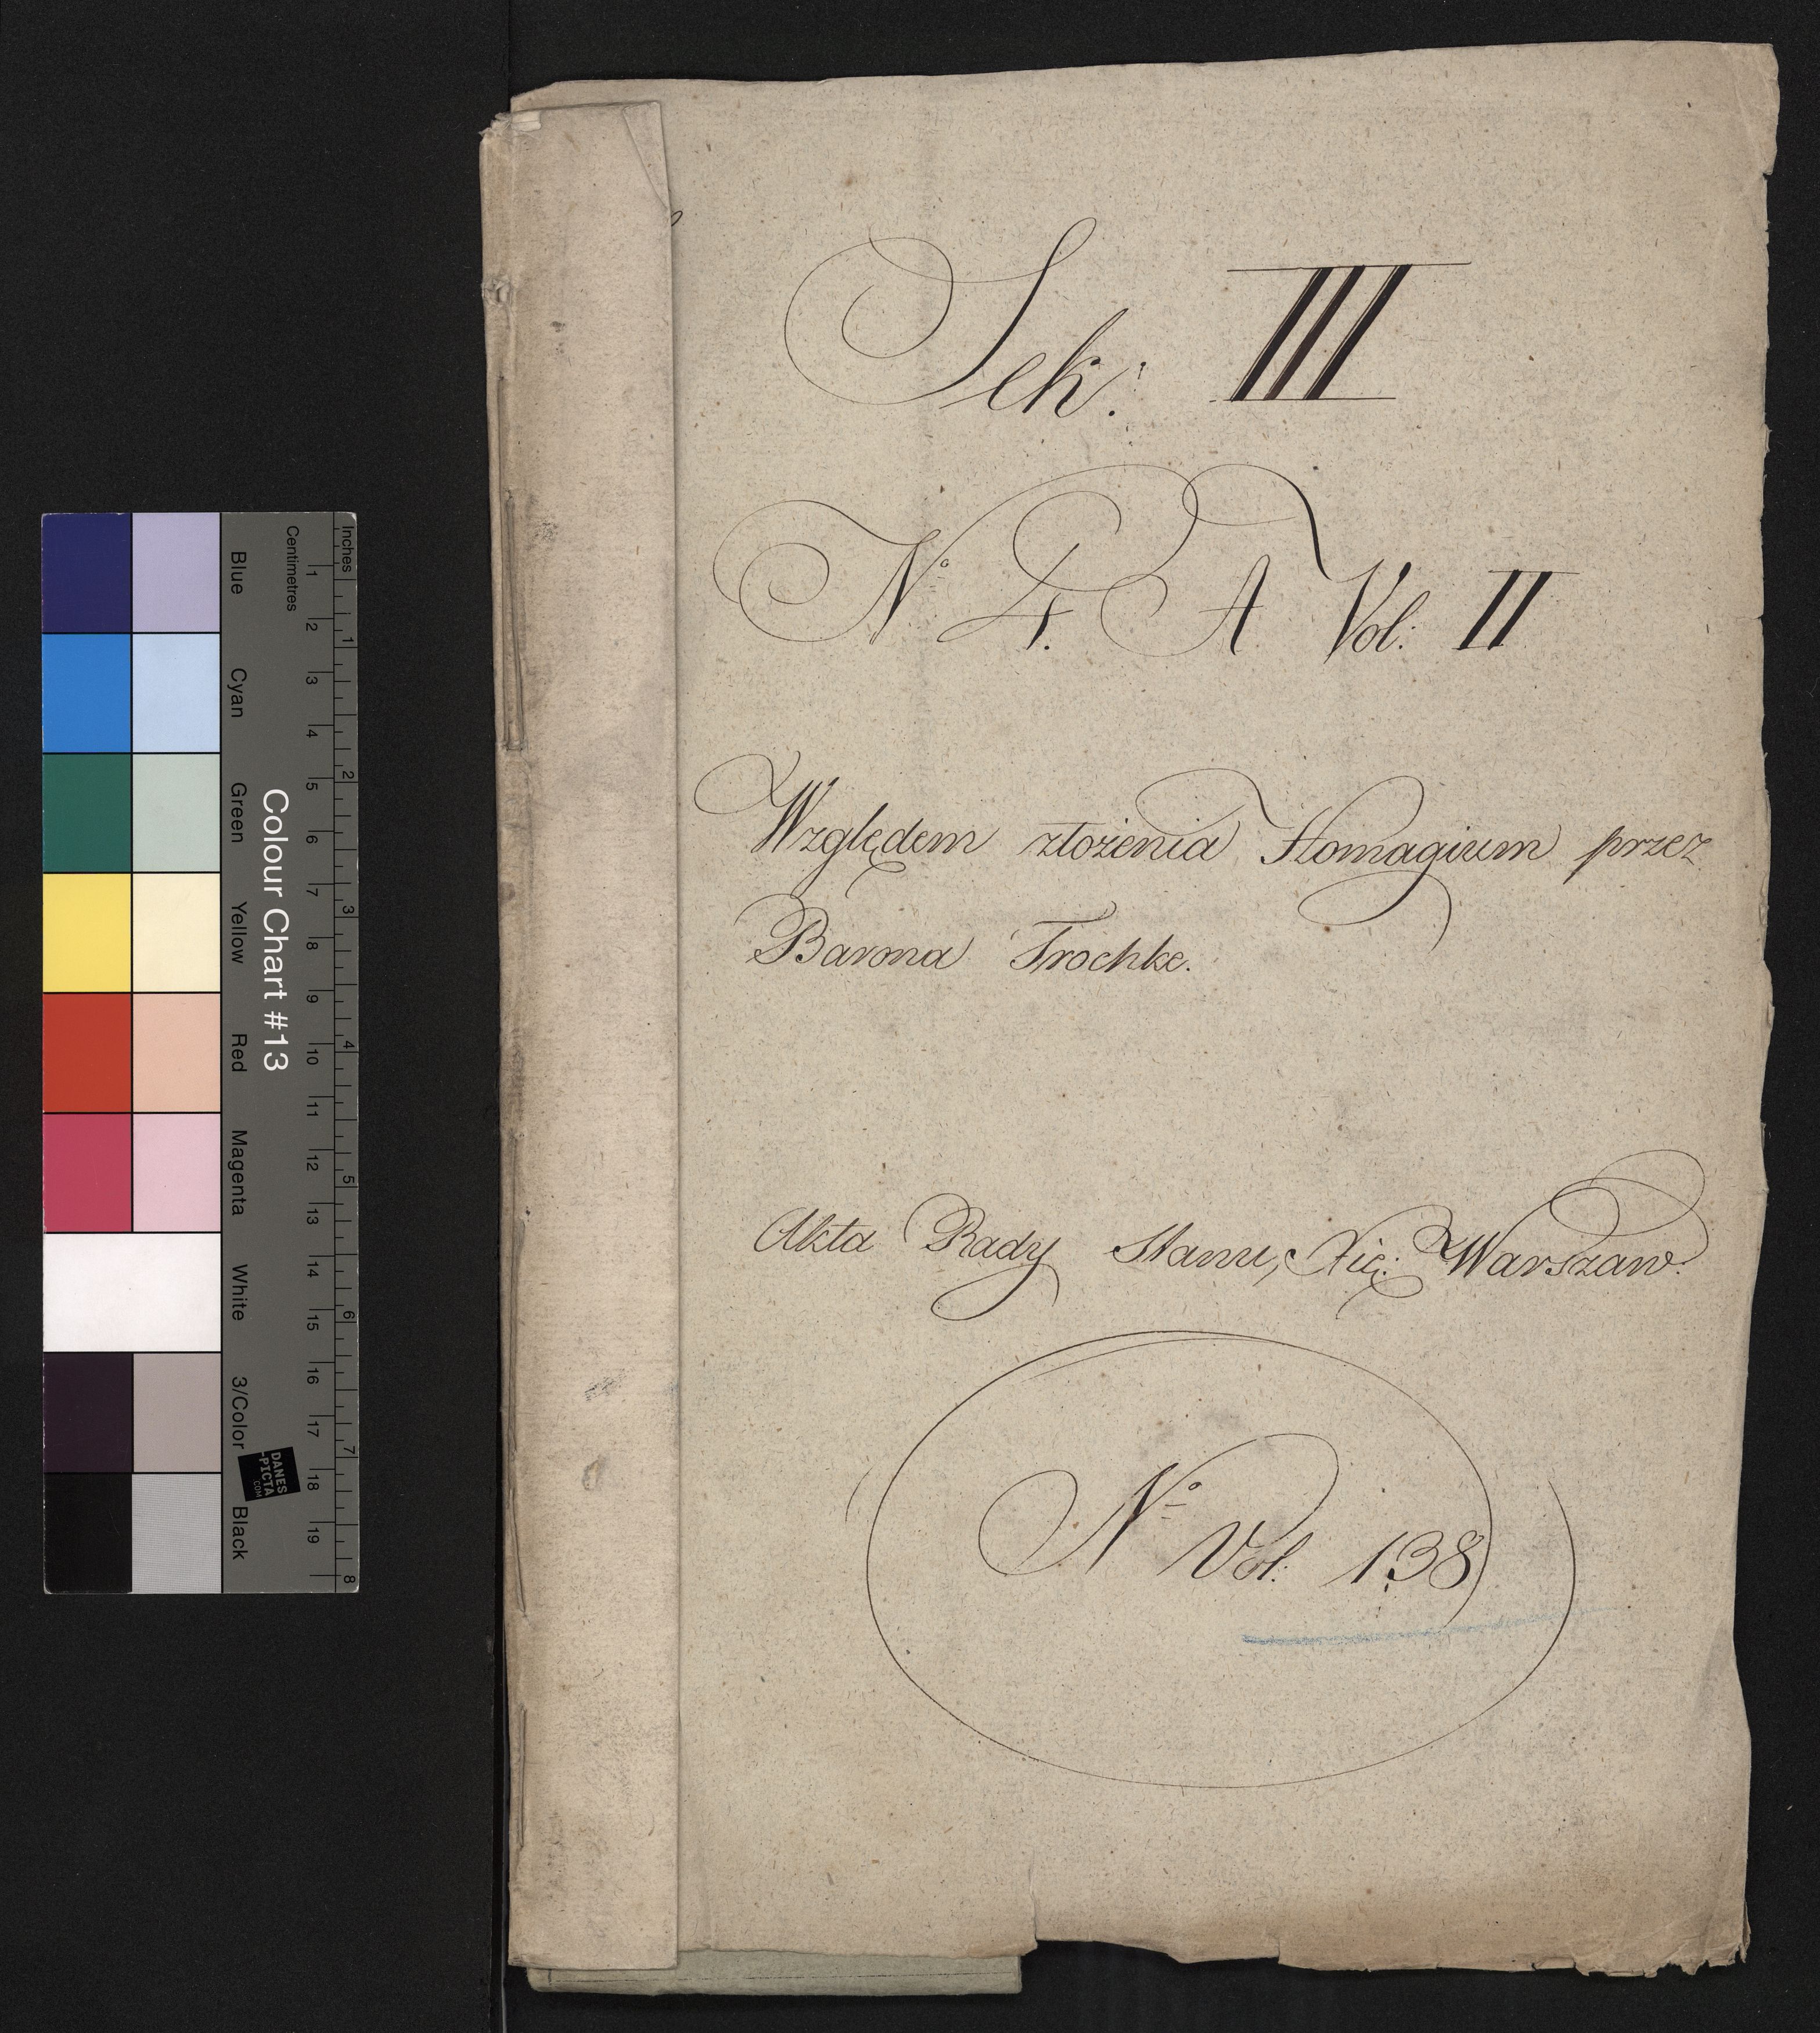 Sek: III
No 4. A Vol: II
Względem złożenia Homagium przez
Barona Trochke.
Akta Rady Stanu, Xię: Warszaw:
No Vol: 138
Colour Chart #13
Blue
Cyan
Green
Yellow
Red
Magenta
White
3/Color
Black
Centimetres
1 2 3 4 5 6 7 8 9 10 11 12 13 14 15 16 17 18 19
Inches
1 2 3 4 5 6 7 8
DANES
-PICTA
.COM